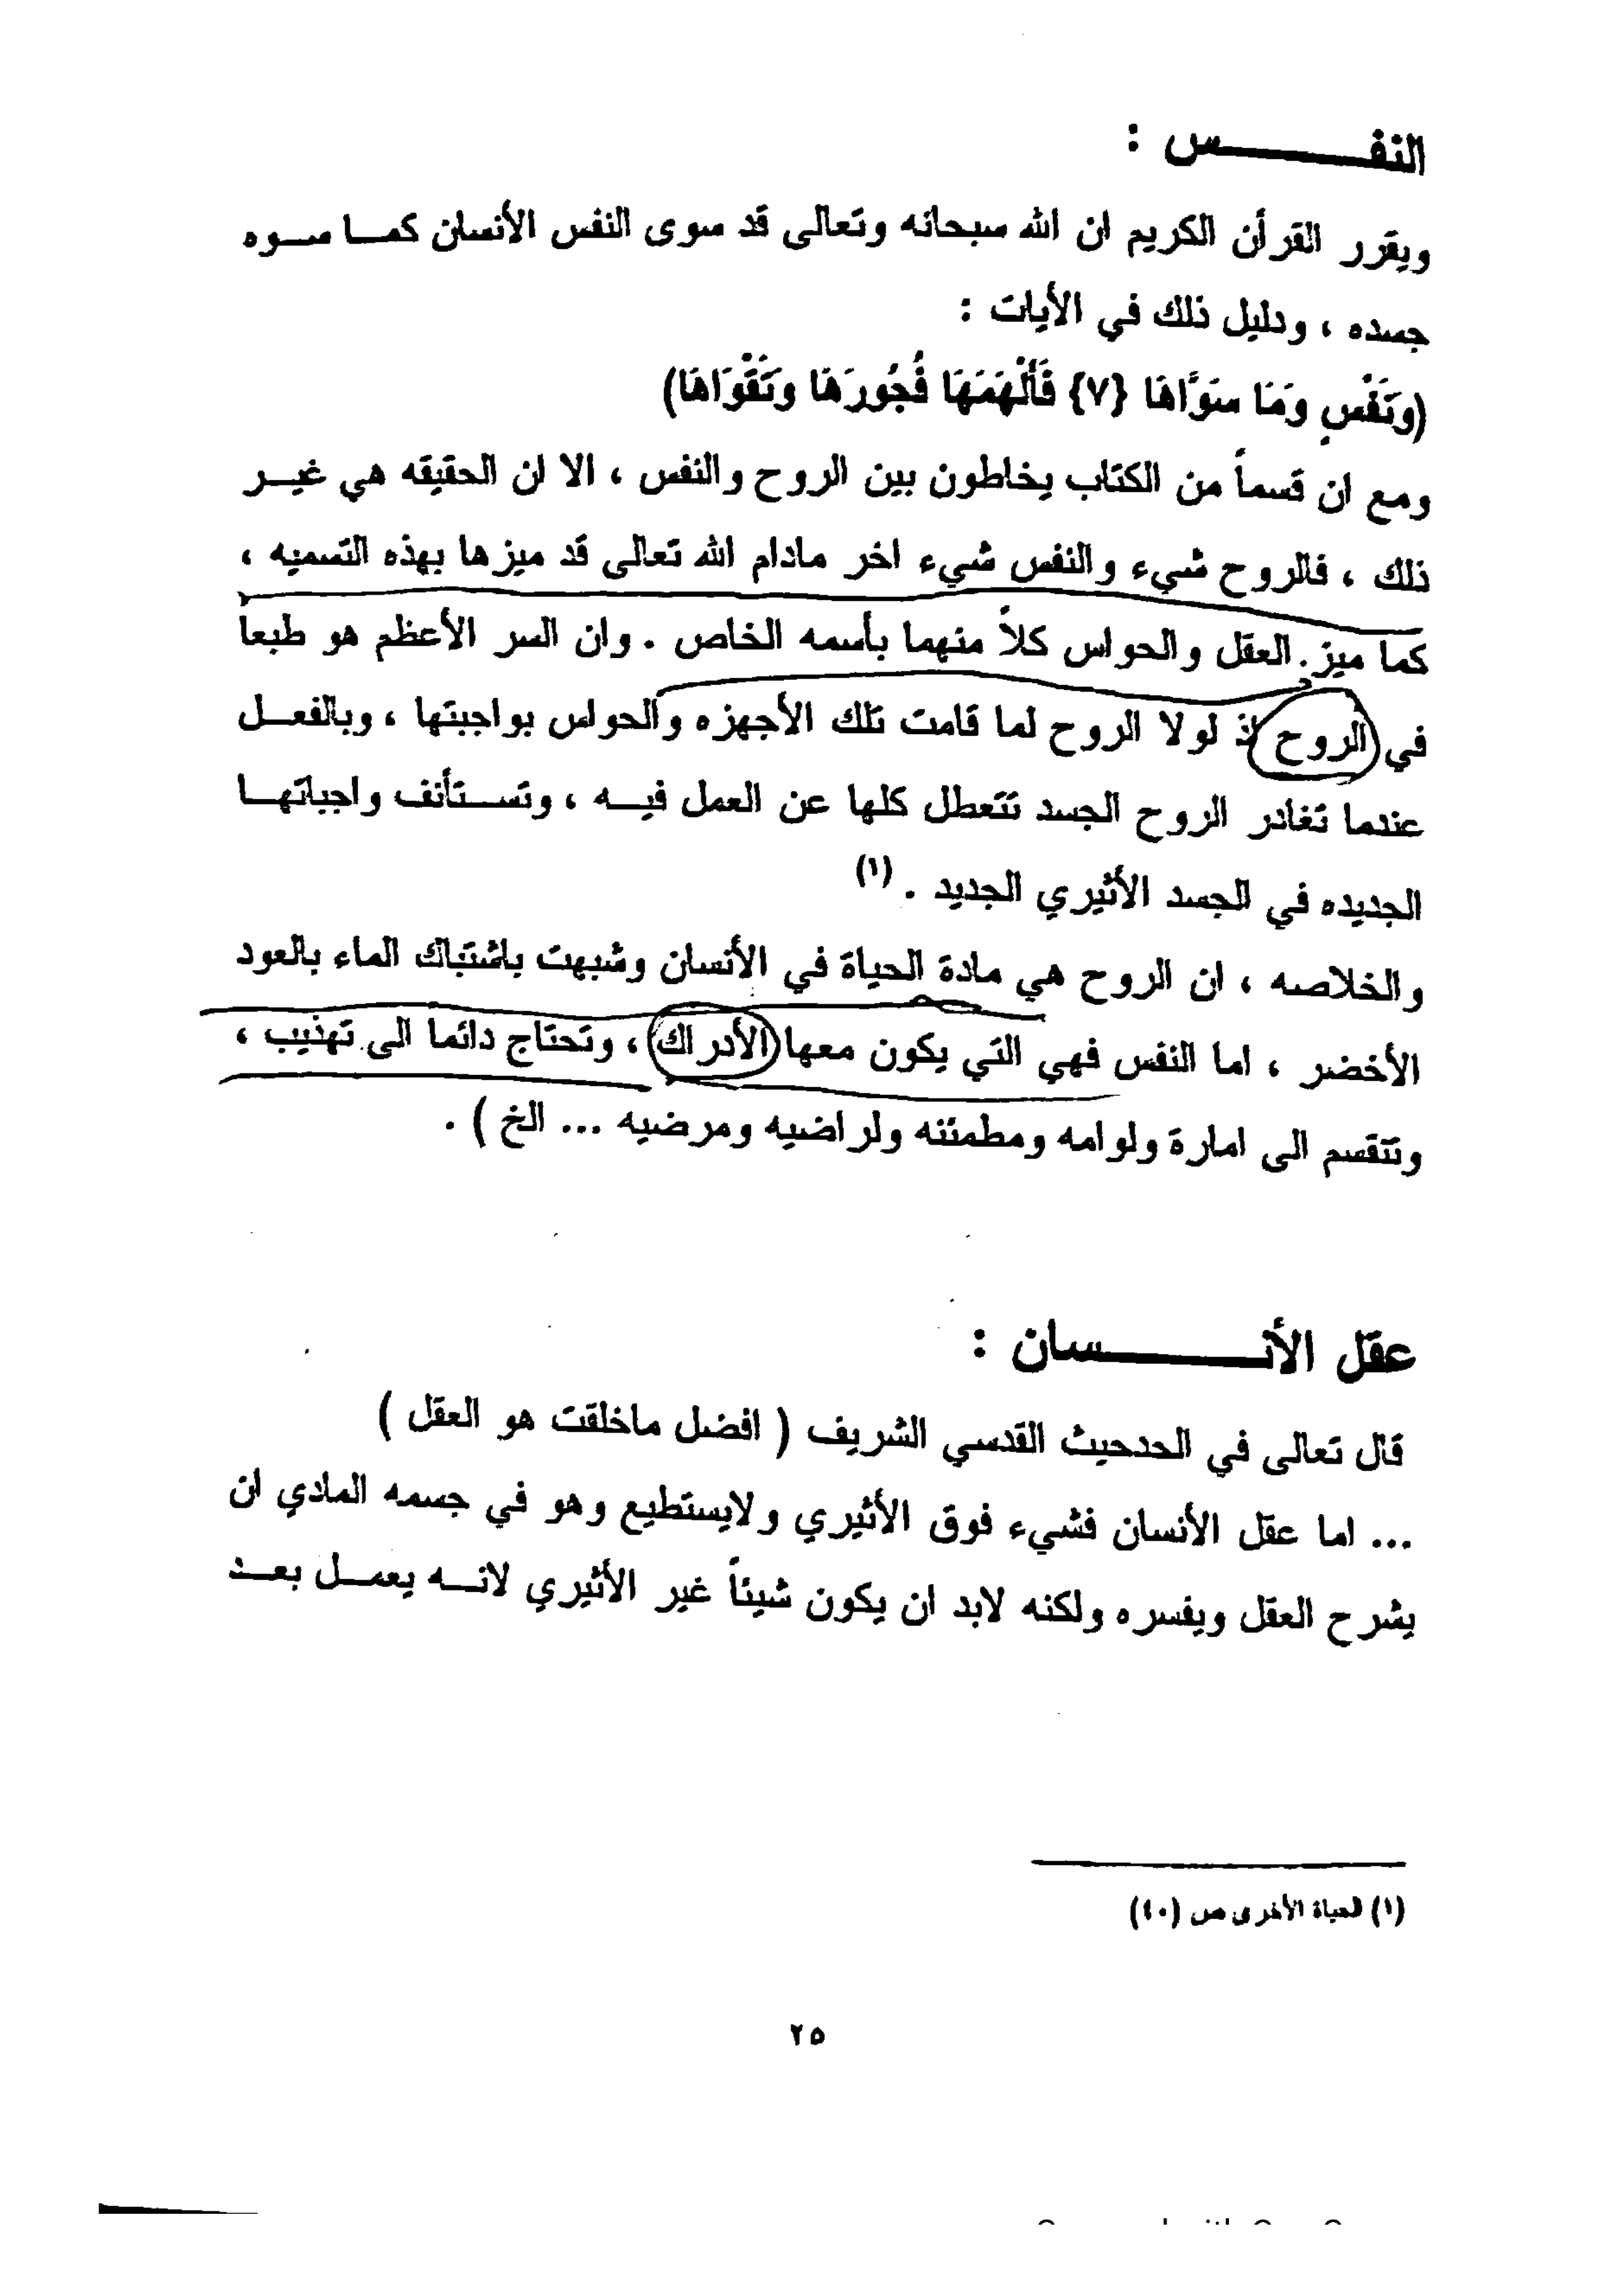 النفـــــــس :
ويقرر القرأن الكريم ان الله سبحانه وتعالى قد سوى النفس الأنسان كمـا سـوه
جسده ، ودليل ذلك في الأيات :
(وَنَفْسٍ وَمَا سَوَّاهَا {٧} فَأَلْهَمَهَا فُجُورَهَا وَتَقْوَاهَا)
ومع ان قسماً من الكتاب يخاطون بين الروح والنفس ، الا ان الحقيقه هي غيـر
ذلك ، فالروح شيء والنفس شيء اخر مادام الله تعالى قد ميزها بهذه التسميه ،
كما ميز العقل والحواس كلاً منهما بأسمه الخاص . وان السر الأعظم هو طبعاً
في الروح إذ لولا الروح لما قامت تلك الأجهزه والحواس بواجبتها ، وبالفعـل
عندما تغادر الروح الجسد تتعطل كلها عن العمل فيـه ، وتسـتأنف واجباتهـا
الجديده في الجسد الأثيري الجديد . (١)
والخلاصه ، ان الروح هي مادة الحياة في الأنسان وشبهت باشتباك الماء بالعود
الأخضر ، اما النفس فهي التي يكون معها الأدراك ، وتحتاج دائما الى تهذيب ،
وتتقسم الى امارة ولوامه ومطمئنه ولراضيه ومرضيه ... الخ ) .
عقل الأنـــــــسان :
قال تعالى في الحدحيث القدسي الشريف ( افضل ماخلقت هو العقل )
... اما عقل الأنسان فشيء فوق الأثيري ولايستطيع وهو في جسمه المادي ان
يشرح العقل ويفسره ولكنه لابد ان يكون شيئاً غير الأثيري لانـه يعمـل بعـد
(١) الحياة الأخرى ص (٤٠)
٢٥